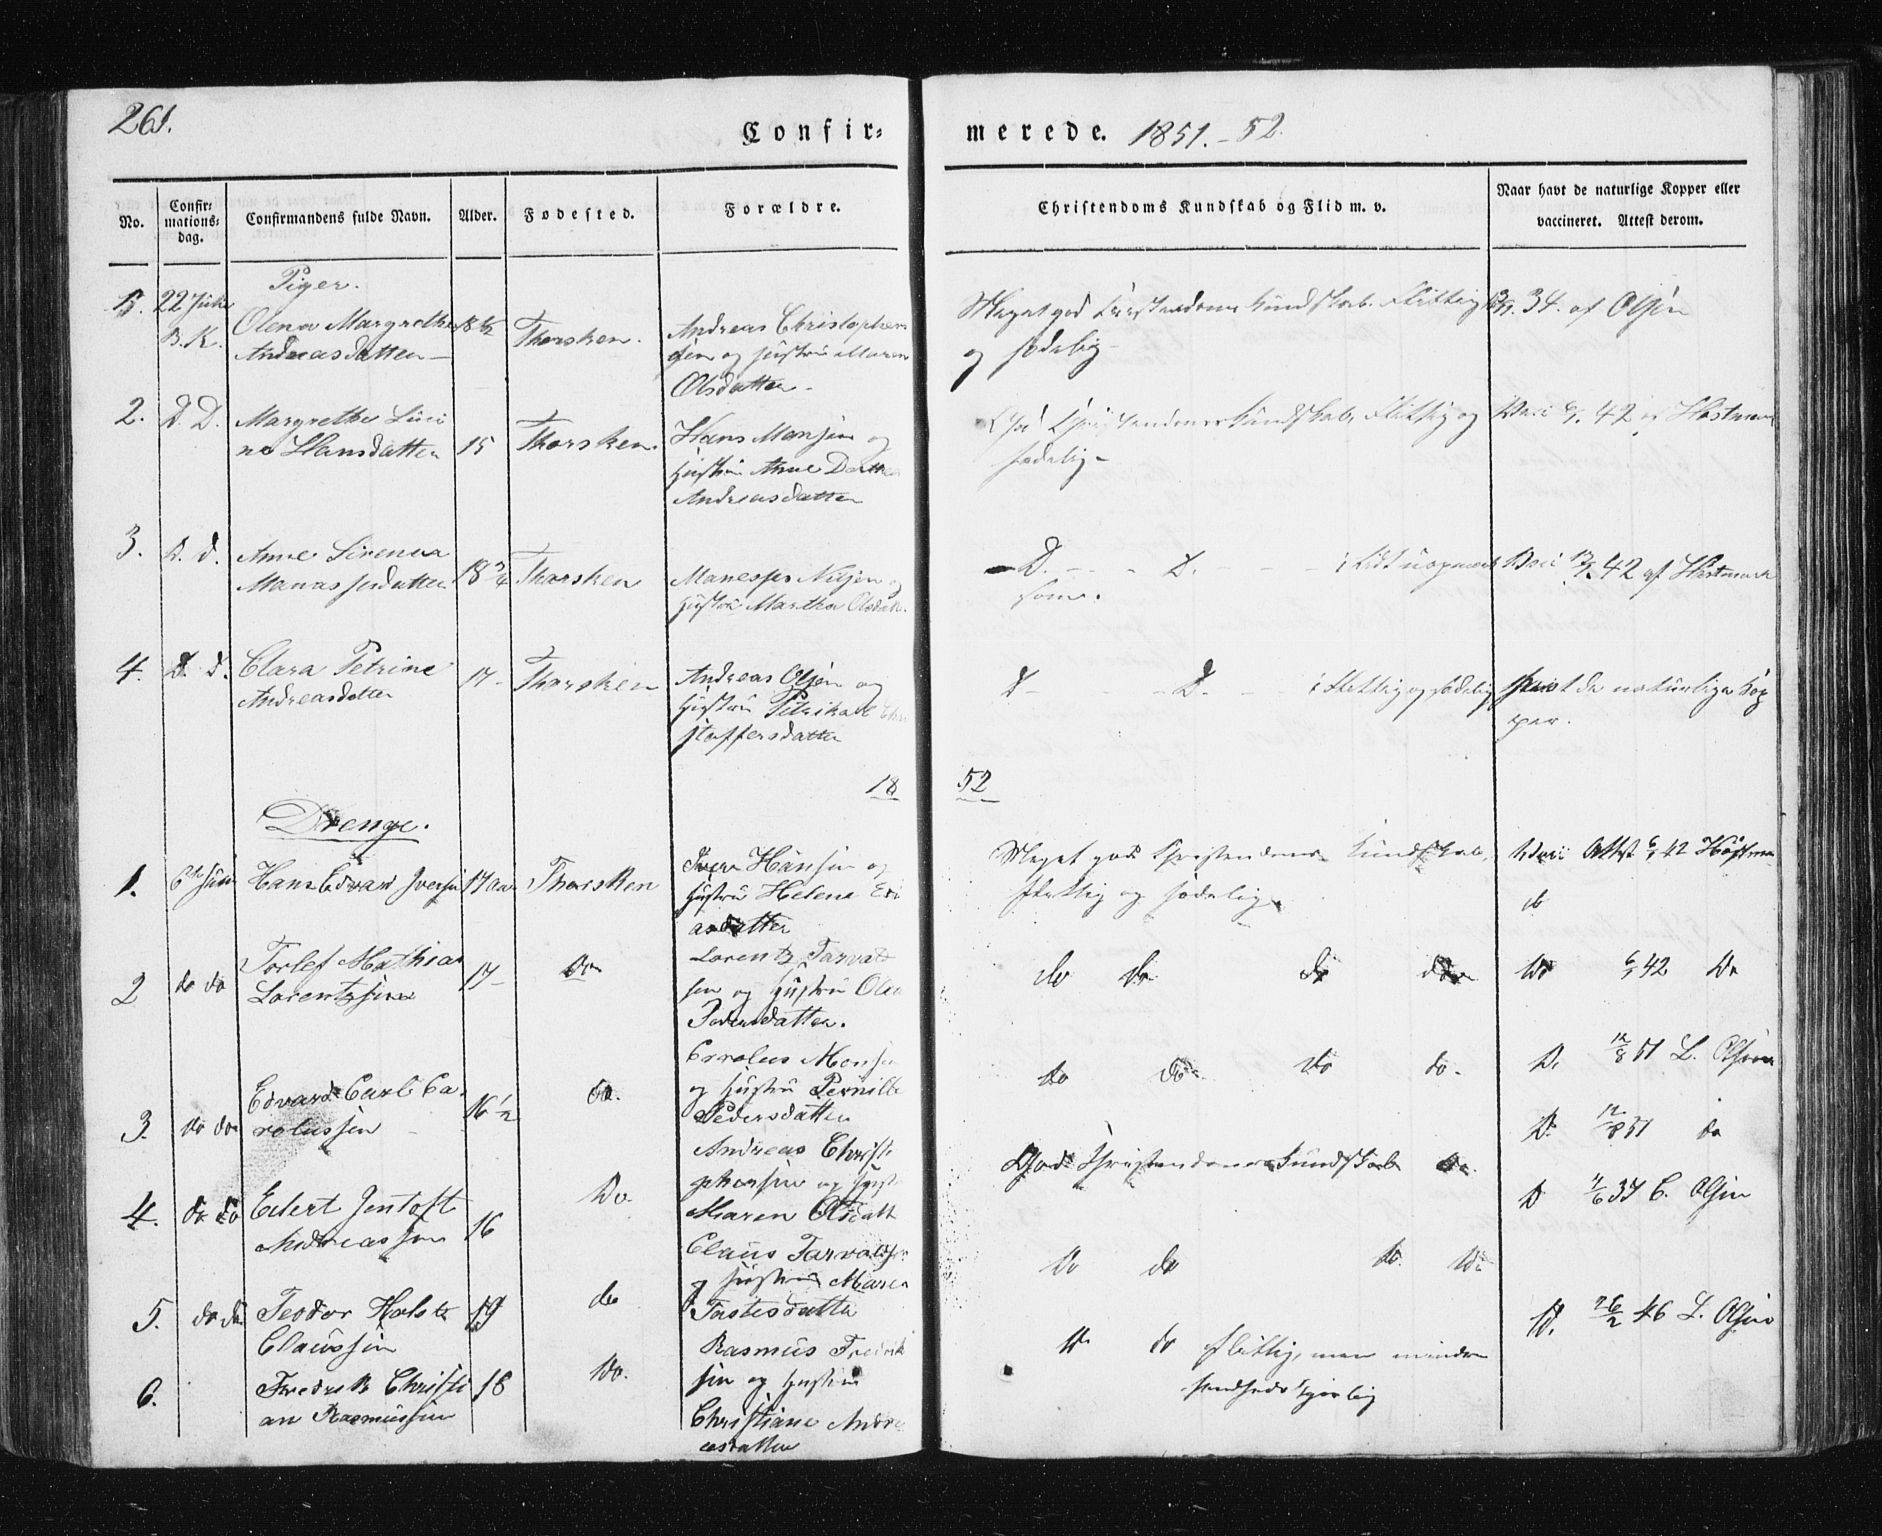 261.
Confir-
merede. 1851.-52.
No.
Confir-
mations-
dag.
Confirmandens fulde Navn.
Alder.
Fødested.
Forældre.
Christendoms Kundskab og Flid m. v.
Naar havt de naturlige Kopper eller
vaccineret. Attest derom.
Piger.
1. 22 B.K. Olena Margrethe
Andreasdatter 18½ Thorsken.
Andreas Christophers
sen og Hustru Maren
Olsdatter.
Meget god Christendoms Kundskab. Flittig
og sædelig
34. af Olsen
2. D. D. Margrethe
Hansdatter 15 Thorsken.
Hans Monsen og
Hustru Anne
Andreasdatter
God Christendoms Kundskab, Flittig og
sædelig
Vacc 42 af Hastmark
3. D. d. Anne Sirenna
Manassesdatter 18¾ Thorsken
Manasses Nilsen og
Hustru Martha Olsdatt
D. D. uopmærk
som.
Vacc 42 af Hastmark
4. D. d. Clara Petrine
Andreasdatter 17 Thorsken
Andreas Olsen og
Hustru Petrikae Chri
stoffersdatter
D D. Flittig og sædelig
havt de naturlige Kop
per.
18 52
Drenge.
1. 6te Juni Hans Edvard Iversen 17 Aar Thorsken
Iver Hansen og
Hustru Helena
asdatter
Meget god Christendoms Kundskab,
flittig og sædelig.
Attest 6/1 42
2 do do Torlef Mathias
Lorentzsen 17 do
Lorentz Tarvald
sen og Hustru
Pedersdatter.
do do do do
do 42 Do
3. do do Edvard Carl Ca
rolussen 16½ do.
Carolus Monsen
og Hustru Pernille
Pedersdatter
do do do do.
D. 12/8 51 L. Olsen
4. do do Edert Jentoft
Andreassen 16 Do.
Andreas Christo
phersen og Hust
Maren Olsdatt
God Christendoms Kundskab do.
D. 12/8 51 do
5. do do Teodor Holst
Claussen 19 do
Claus Tarvaldsen
og Hustru Maren
Tostesdatter
Do do do. do
D 37 C. Olsen
6. Fredrik Christi
an Rasmussen 18 Do.
Rasmus Fredrik
sen og Hustru
Christiane Andre
asdatter
do do flittig, men mindre
D. 26/2 46 L. Olsen